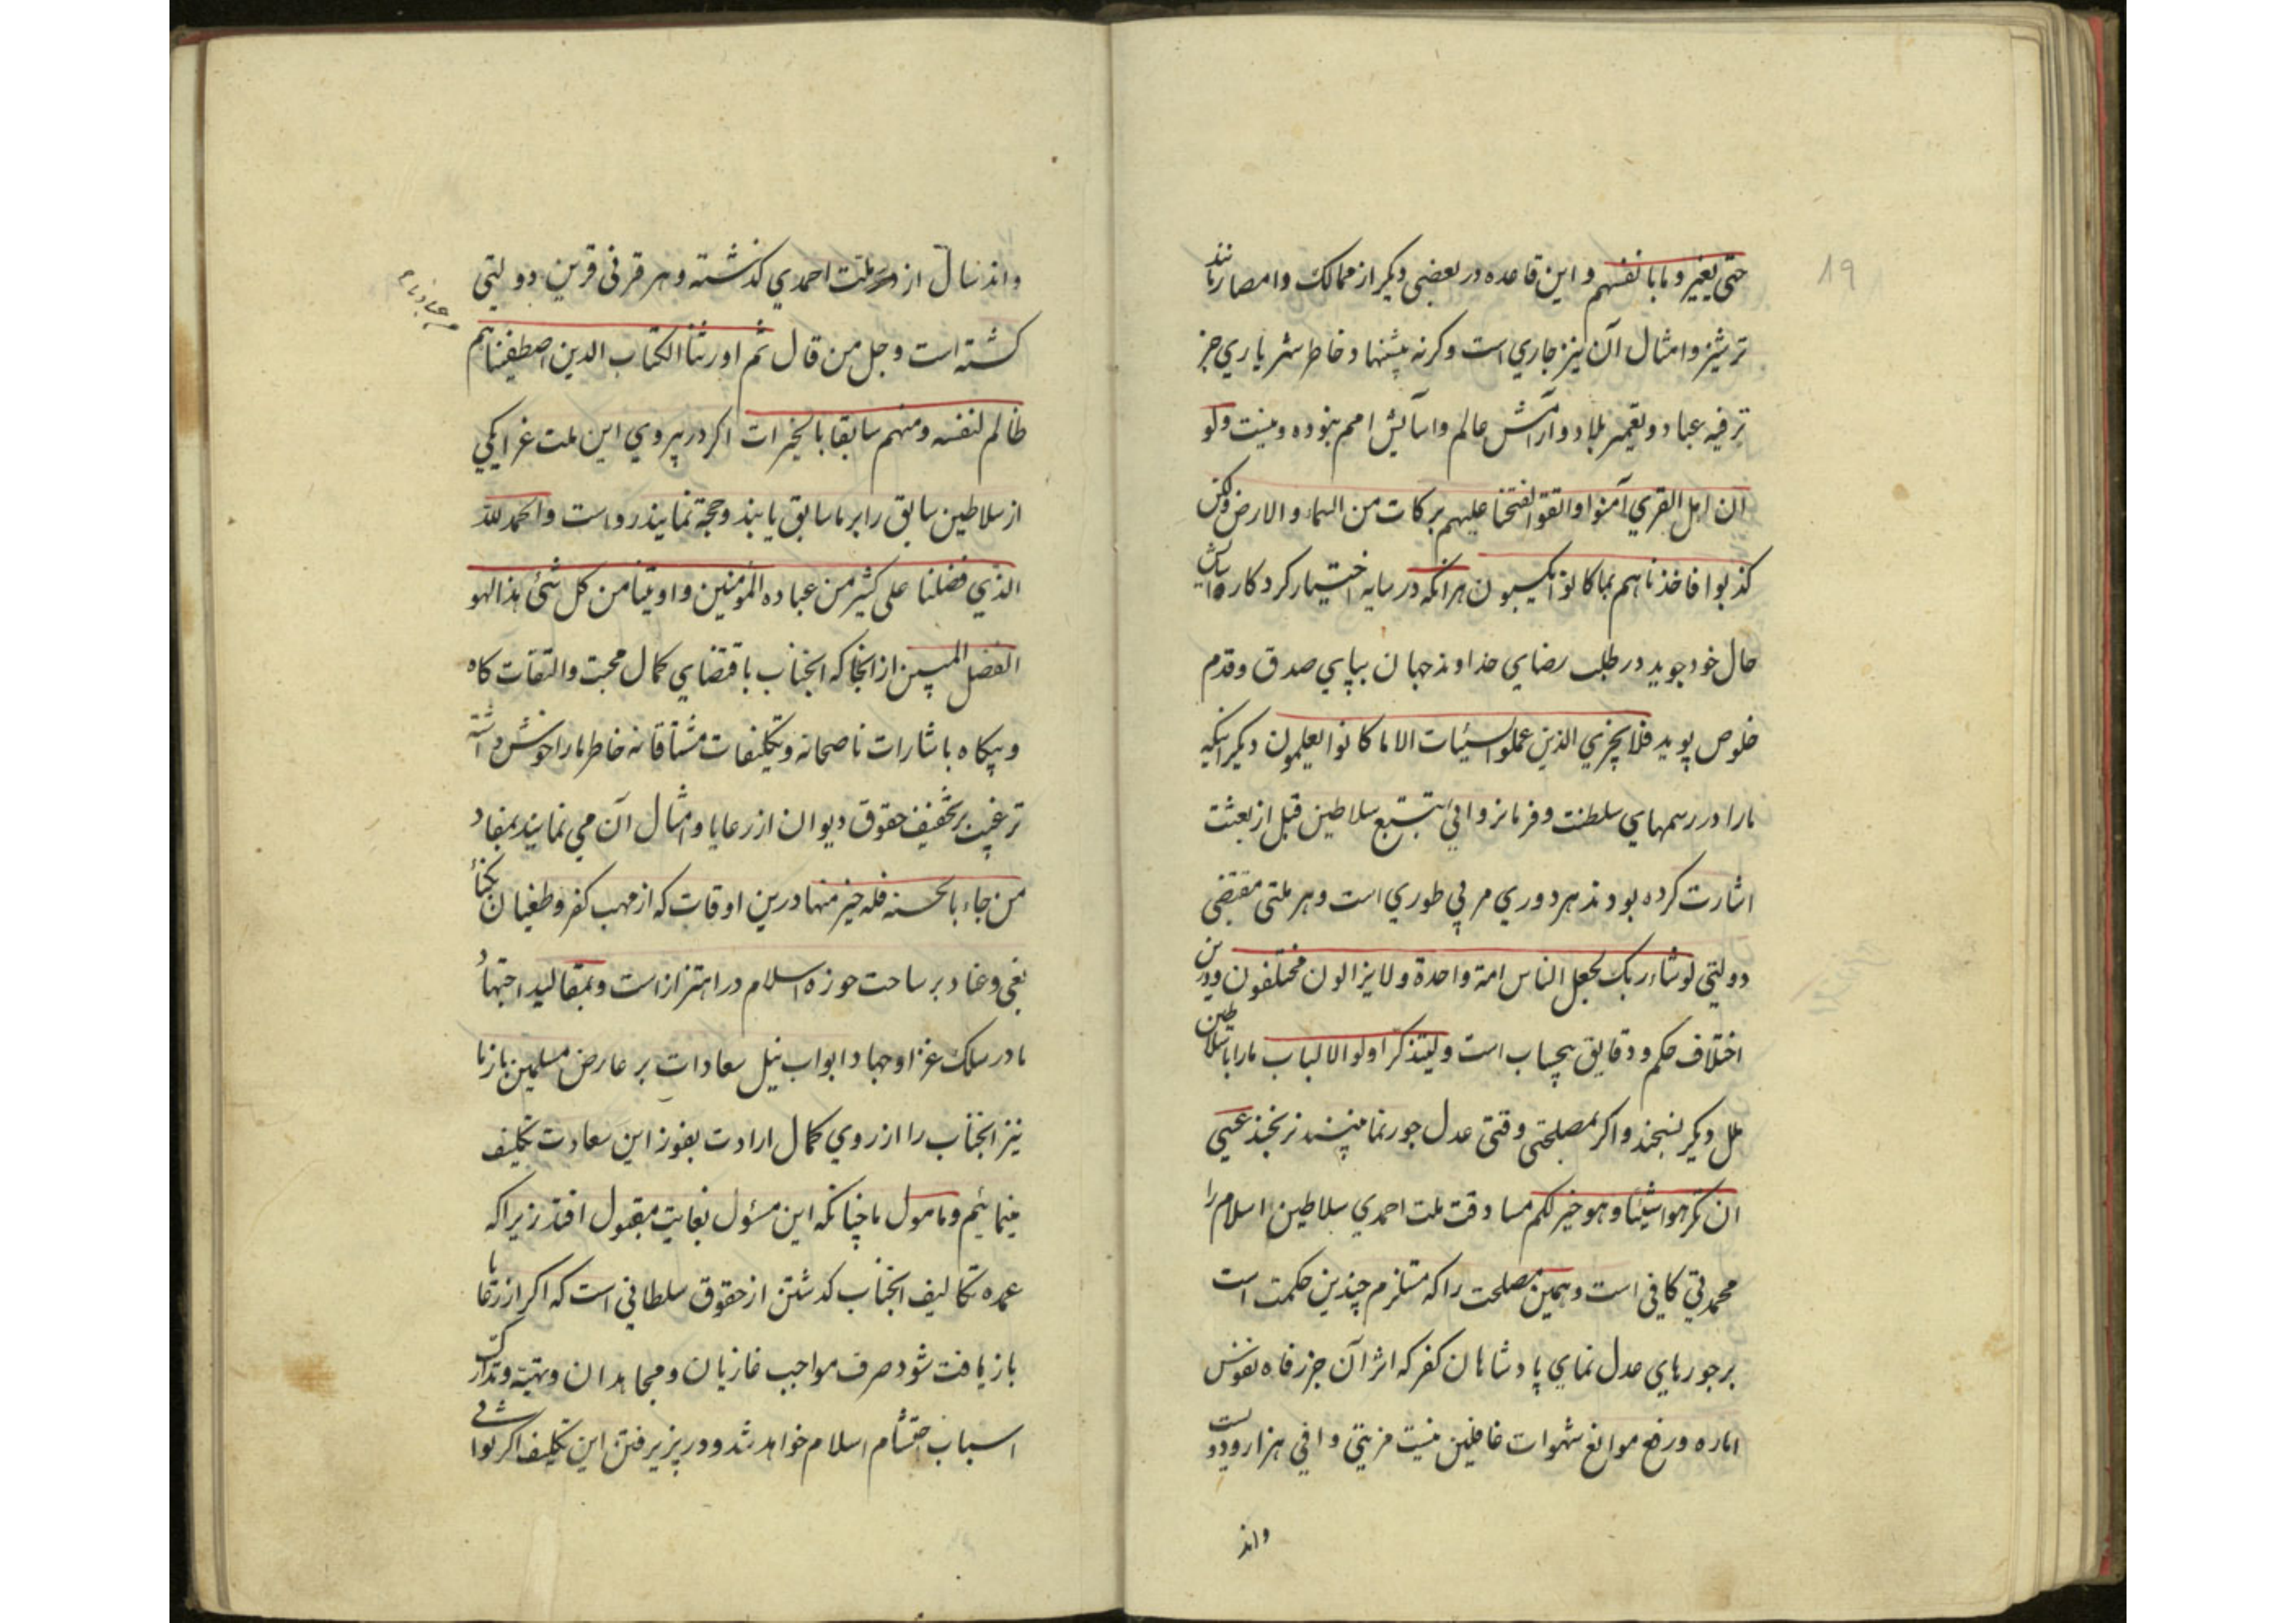 19
حتی یغیروا ما بانفسهم و این قاعده در بعضی دیکر از ممالک و امصار مانند
ترشیز و امثال آن نیز جاری است و کرنه پیشنهاد خاطر شهریاری جز
ترفیه عباد و تعمیر بلاد و آرامش عالم و آسایش امم نبوده و نیست ولو
ان اهل القری آمنوا و اتقوا لفتحنا علیهم برکات من السماء و الارض ولکن
کذبوا فاخذناهم بما کانوا یکسبون هر آنکه در سایه اختیار کردکار آسایش
حال خود جوید در طلب رضای خداوند جهان بپای صدق و قدم
خلوص پوید فلا یجزی الذین عملوا السیئات الا ما کانوا یعلمون دیکر اینکه
ما را در رسمهای سلطنت و فرمانروائی بتتبع سلاطین قبل از بعثت
اشارت کرده بودند هر دوری مربی طوری است و هر ملتی مقتضی
دولتی لو شاء ربک لجعل الناس امة واحدة و لا یزالون مختلفون و درین
اختلاف حکم و دقایق بیحساب است و لیتذکر اولو الالباب ما را با سلاطین
ملل دیکر نسنجند و اکر مصلحتی وقتی عدل جور نما بینند نرنجند عسی
ان تکرهوا شیئا و هو خیر لکم مساوقت ملت احمدی سلاطین اسلام را
محمدتی کافی است و همین مصلحت را که متلزم چندین حکمت است
بر جورهای عدل نمای پادشاهان کفر که اثر آن جز رفاه نفوس
اماره و رفع موانع شهوات غافلین نیست مزیتی وافی هزار و دویست
واند
واند سال از ملت احمدی کذشته و هر قرنی قرین دولتی
کشته است و جل من قال ثم اورثنا الکتاب الذین اصطفینا هم
ظالم لنفسه و منهم سابقا بالخیرات اکر در پیروی این ملت غرا یکی
از سلاطین سابق را بر ما سابق یابند و حجة نمایند رواست و الحمد لله
الذی فضلنا علی کثیر من عباده المؤمنین و اوتینا من کل شئ هذا لهو
الفضل المبین از انجا که انجناب باقتضای کمال محبت و التفات کاه
و بیکاه باشارات ناصحانه و تکلیفات مشتاقانه خاطر ما را خوش داشته
ترغیب بر تخفیف حقوق دیوان از رعایا و امثال آن می نمایند بمفاد
من جاء بالحسنه فله خیر منها درین اوقات که از مهب کفر و طغیان نکبا
بغی و عناد بر ساحت حوزه اسلام در اهتزاز است و بمقالید اجتهاد
ما در سلک غزا و جهاد ابواب نیل سعادات بر عارض مسلمین باز ما
نیز انجناب را از روی کمال ارادت بفوز این سعادت تکلیف
مینمائیم و مامول ما چنانکه این مسؤل بغایت مقبول افتد زیرا که
عمده تکالیف انجناب کدشتن از حقوق سلطانی است که اکر از رعایا
بازیافت شود صرف مواجب غازیان و مجاهدان و تهیه و تدارک
اسباب احتشام اسلام خواهد شد و در پزیرفتن این تکلیف اکر ثوابی